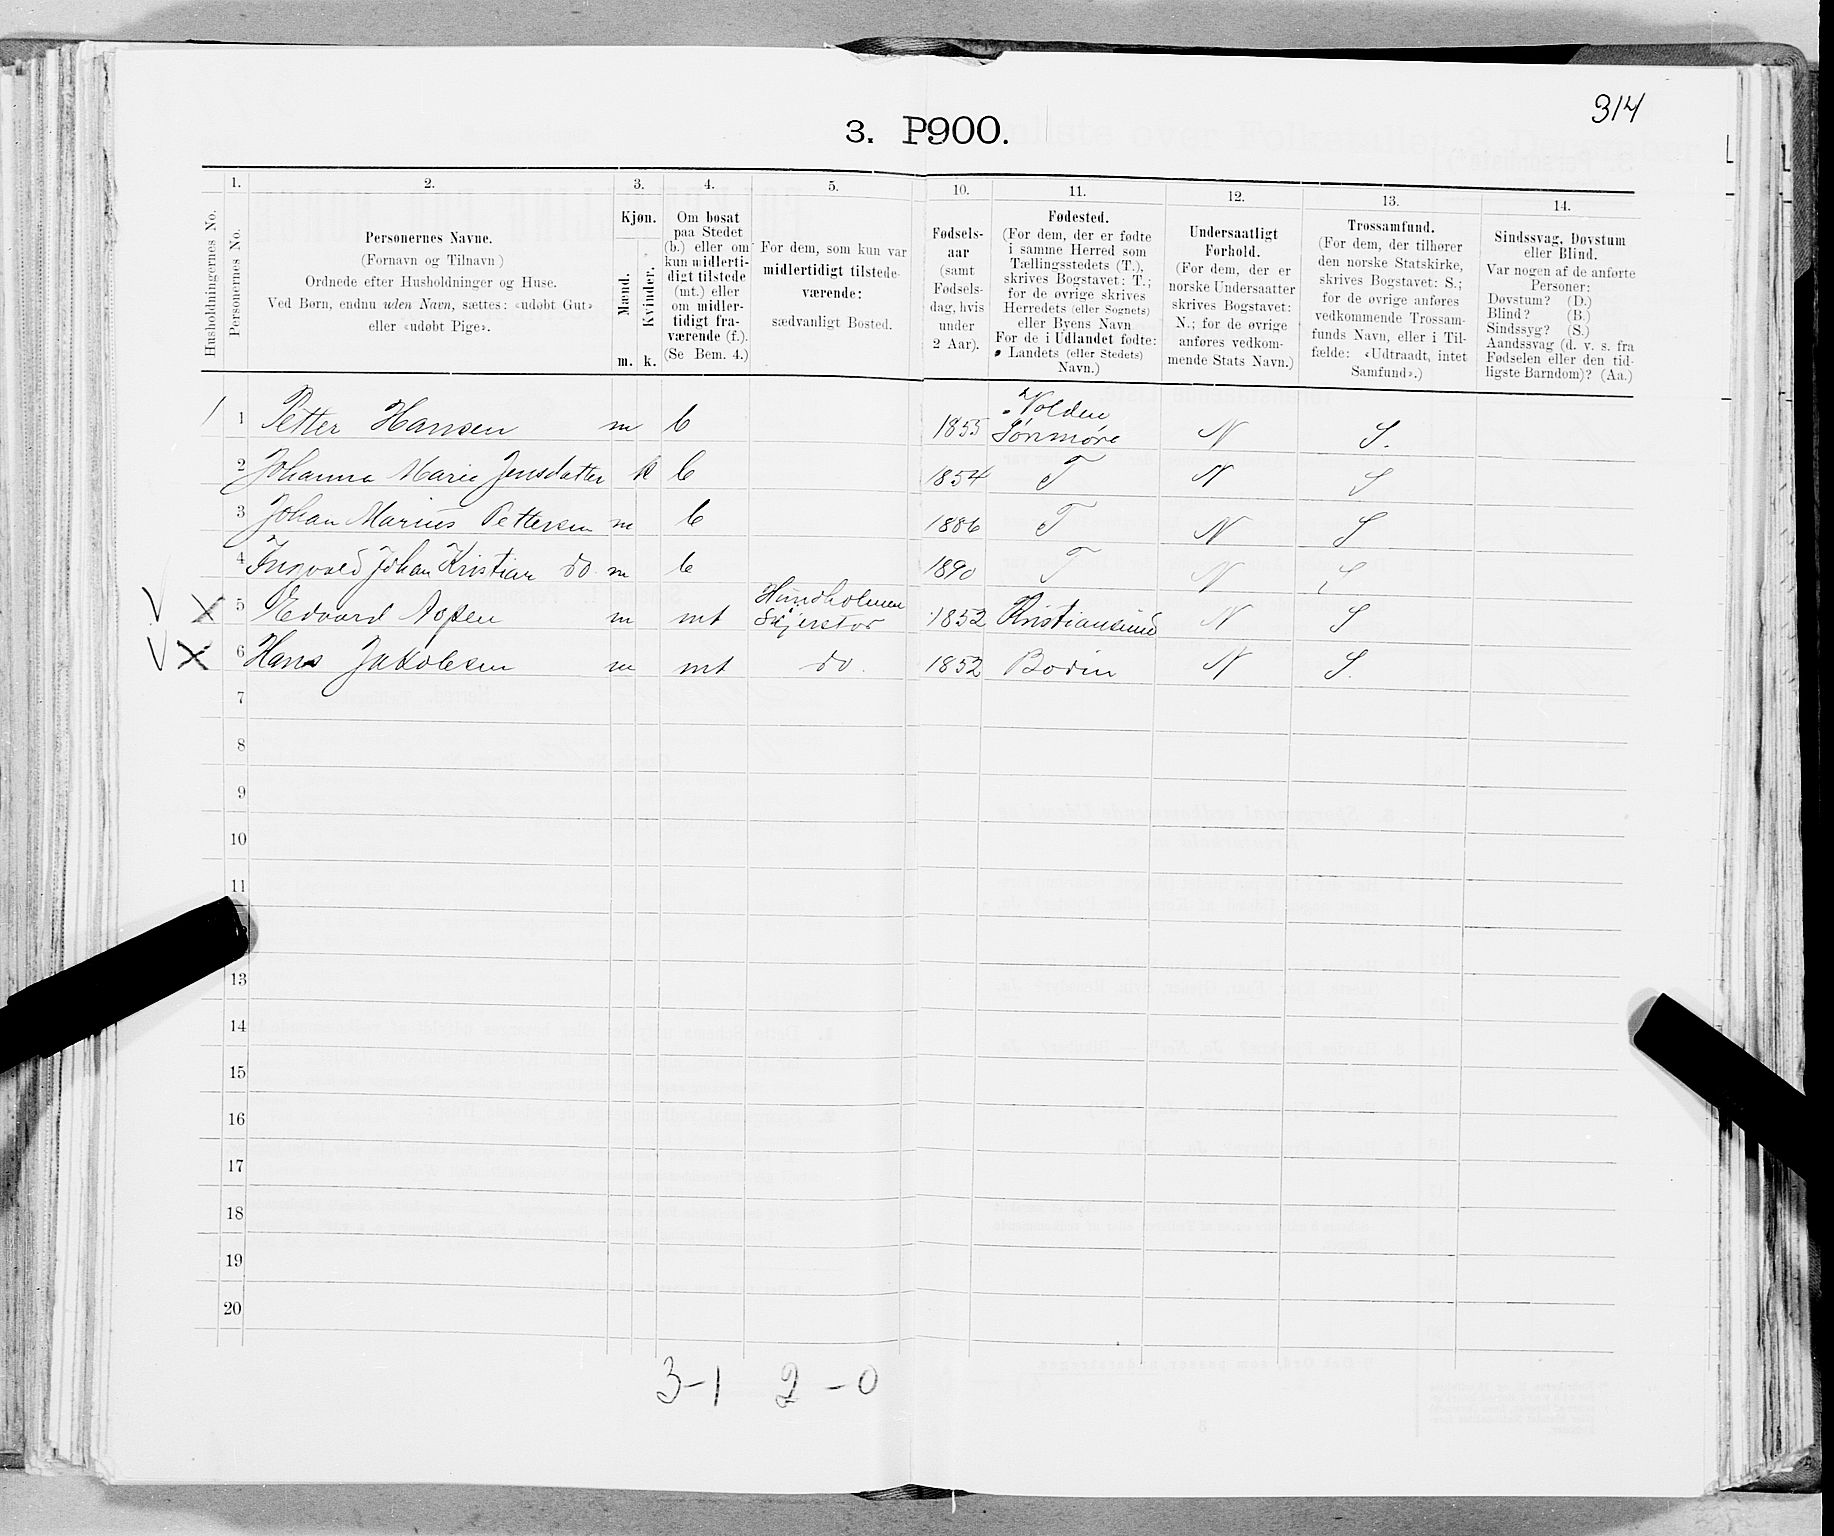 314
3. P900.
Husholdningernes No.
1.
Personernes No.
2.
Personernes Navne.
(Fornavn og Tilnavn)
Ordnede efter Husholdninger og Huse.
Ved Børn, endnu uden Navn, sættes: «udøbt Gut»
eller «udøbt Pige».
3.
Kjøn.
Mænd.
Kvinder.
m. k.
4.
Om bosat
paa Stedet
(b.) eller om
kun midlerti-
digt tilstede
(mt.) eller
om midler-
tidigt fra-
værende (f.).
(Se Bem. 4.)
5.
For dem, som kun var
midlertidigt tilstede-
værende:
sædvanligt Bosted.
10.
Fødsels-
aar
(samt
Fødsels-
dag, hvis
under
2 Aar).
11.
Fødested.
(For dem, der er fødte
i samme Herred som
Tællingsstedets (T.),
skrives Bogstavet: T.;
for de øvrige skrives
Herredets (eller Sognets)
eller Byens Navn
For de i Udlandet fødte:
Landets (eller Stedets)
Navn.)
12.
Undersaatligt
Forhold.
(For dem, der er
norske Undersaatter
skrives Bogstavet:
N.; for de øvrige
anføres vedkom-
mende Stats Navn.)
13.
Trossamfund.
(For dem, der tilhører
den norske Statskirke,
skrives Bogstavet: S.;
for de øvrige anføres
vedkommende Trossam-
funds Navn, eller i Til-
fælde: «Udtraadt, intet
Samfund».)
14.
Sindssvag, Døvstum
eller Blind.
Var nogen af de anførte
Personer:
Døvstum? (D.)
Blind? (B.)
Sindssyg? (S.)
Aandssvag (d. v. s. fra
Fødselen eller den tid-
ligste Barndom)? (Aa.)
Volden
1 1 Petter Hansen m b 1855 Sønmøre N S.
2 Johanna Marie Jensdatter k b 1854 T N S
3 Johan Marius Pettersen m b 1886 T N S
4 Ingvald Johan Kristian do m b 1890 T N S
Hundholmen
V X 5 Edvard Aspen m mt Skjerstad 1852 Kristiansund N S
V X 6 Hans Jakobsen m mt do. 1852 Bodin N S.
7
8
9
10
11
13
14
15
16
17
18
19
20
3-1 2-0